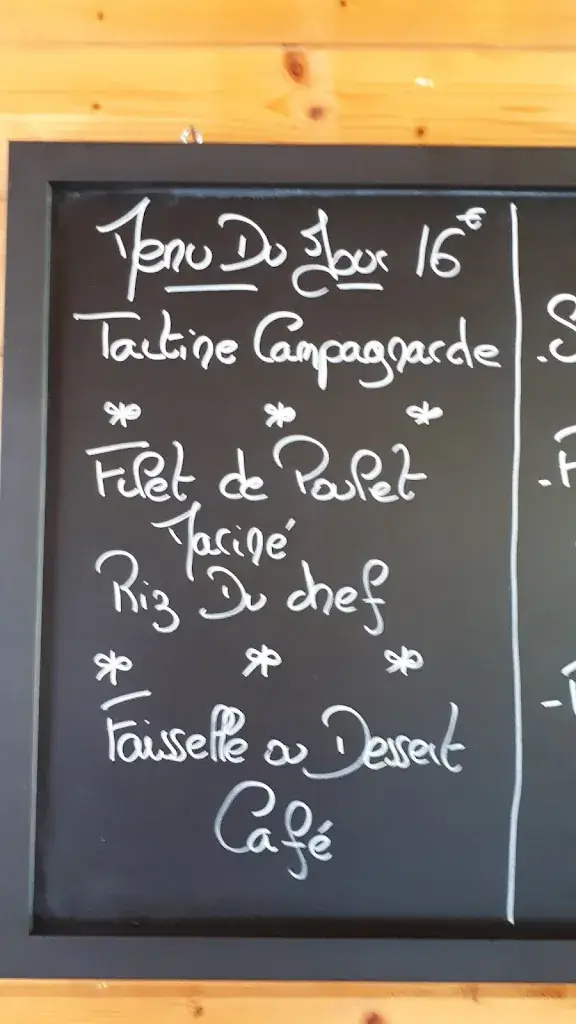 Menu Du Jour 16€
Tartine Campagnarde
* * *
Filet de Poulet
Mariné
Riz Du chef
* * *
Faisselle ou Dessert
Café